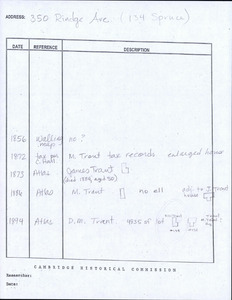 ADDRESS: 350 Rindge Ave (134 Spruce)
DATE REFERENCE DESCRIPTION
1856 Walling map no ?
1872 tax per M. Trant tax records enlarged house
1873 Atlas James Trant
(died 1884, aged 50)
1886 Atlas M. Trant no ell adj. to J. Trant
1894 Atlas D.M. Trant 4835 sf lot
CAMBRIDGE HISTORICAL COMMISSION
Researcher:
Date: